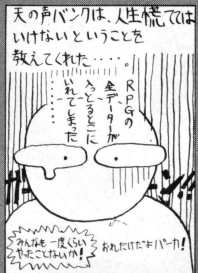 天の声バンクは、人生慌てては
いけないということを
教えてくれた・・・・・。
RPGの
全データーが
入っとるとこに
いれてしまった
・・・・・
ガーン!!
みんなも一度くらい
やったことないか!
おれだけだよバーカ!